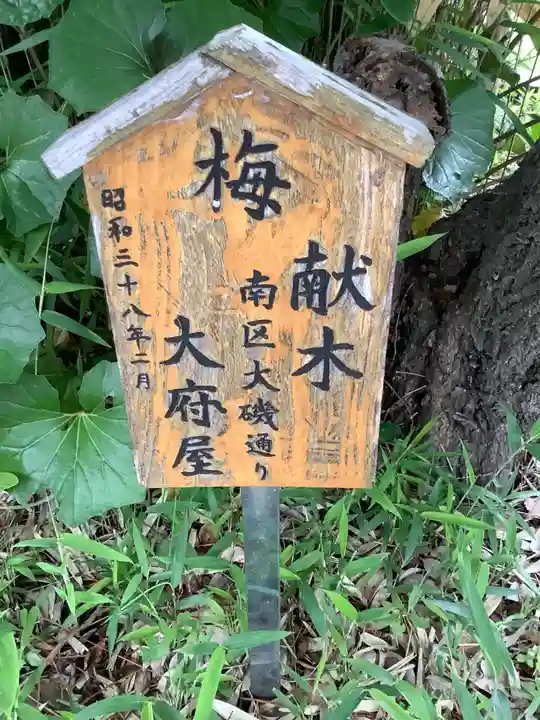 梅
献木
南区大磯通り
大府屋
昭和三十八年二月